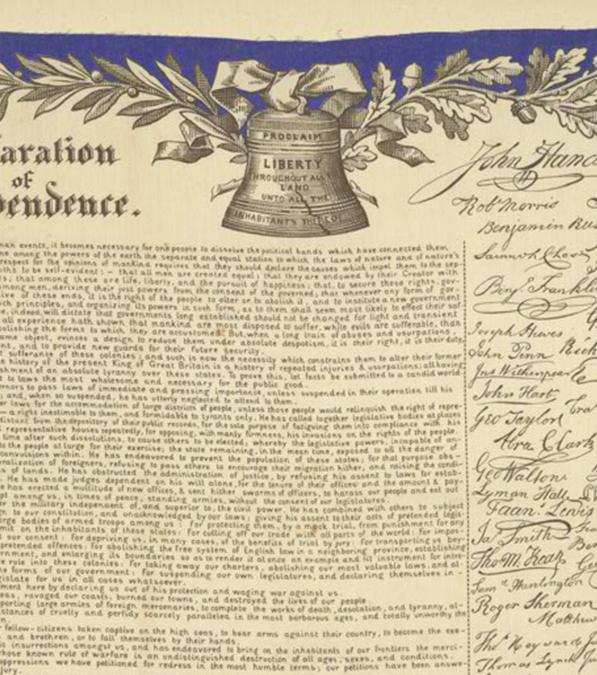 aration
of
pendence.
PROCLAIM
LIBERTY
THROUGHOUT ALL
LAND
UNTO ALL THE
INHABITANTS THEREOF
man events, it becomes necessary for one people to dissolve the political bands which have connected them
me among the powers of the earth the separate and equal station to which the laws of nature and of nature's
respect for the opinions of mankind requires that they should declare the causes which impel them to the sep-
uths to be self-evident: — that all men are created equal; that they are endowed by their Creator with
s; that among these are life, liberty, and the pursuit of happiness; that, to secure these rights, gov-
among men, deriving their just powers from the consent of the governed; that whenever any form of gov-
ive of these ends, it is the right of the people to alter or to abolish it, and to institute a new government,
ch principles, and organizing its powers in such form, as to them shall seem most likely to effect their saf
e, indeed, will dictate that governments long established should not be changed for light and transient
all experience hath shown that mankind are most disposed to suffer, while evils are sufferable, than
olishing the forms to which they are accustomed. But, when a long train of abuses and usurpations,
ame object, evinces a design to reduce them under absolute despotism, it is their right, it is their duty,
ent, and to provide new guards for their future security.
t sufferance of these colonies; and such is now the necessity which constrains them to alter their former
e history of the present King of Great Britain is a history of repeated injuries & usurpations; all having
shment of an absolute tyranny over these states. To prove this, let facts be submitted to a candid world:
t to laws the most wholesome and necessary for the public good.
ernors to pass laws of immediate and pressing importance, unless suspended in their operation till his
; and, when so suspended, he has utterly neglected to attend to them.
er laws for the accommodation of large districts of people, unless those people would relinquish the right of repre-
— a right inestimable to them, and formidable to tyrants only. He has called together legislative bodies at places
istant from the depository of their public records, for the sole purpose of fatiguing them into compliance with his
representative houses repeatedly, for opposing, with manly firmness, his invasions on the rights of the people.
time after such dissolutions, to cause others to be elected; whereby the legislative powers, incapable of an-
to the people at large for their exercise; the state remaining, in the mean time, exposed to all the danger of
convulsions within. He has endeavored to prevent the population of these states; for that purpose obs-
ralization of foreigners, refusing to pass others to encourage their migration hither, and raising the condi-
s of lands. He has obstructed the administration of justice, by refusing his assent to laws for estab-
. He has made judges dependent on his will alone, for the tenure of their offices and the amount & pay-
as erected a multitude of new offices, & sent hither swarms of officers, to harass our people and eat out
pt among us, in times of peace, standing armies, without the consent of our legislatures.
r the military independent of, and superior to, the civil power. He has combined with others to subject
gn to our constitution, and unacknowledged by our laws; giving his assent to their acts of pretended legis-
arge bodies of armed troops among us: For protecting them, by a mock trial, from punishment for any
it on the inhabitants of these states: For cutting off our trade with all parts of the world: For impos-
ur consent: For depriving us, in many cases, of the benefits of trial by jury: For transporting us be-
pretended offences: For abolishing the free system of English law in a neighboring province, establishing
rnment, and enlarging its boundaries so as to render it at once an example and fit instrument for intro-
e rule into these colonies: For taking away our charters, abolishing our most valuable laws, and al-
the forms of our government: For suspending our own legislatures, and declaring themselves in-
gislate for us in all cases whatsoever.
ment here by declaring us out of his protection and waging war against us.
eas, ravaged our coasts, burned our towns, and destroyed the lives of our people.
sporting large armies of foreign mercenaries, to complete the works of death, desolation, and tyranny, al-
stances of cruelty and perfidy scarcely paralleled in the most barbarous ages, and totally unworthy the
n.
r fellow-citizens taken captive on the high seas, to bear arms against their country, to become the exe-
and brethren, or to fall themselves by their hands.
c insurrections amongst us, and has endeavored to bring on the inhabitants of our frontiers the merci-
hose known rule of warfare is an undistinguished destruction of all ages, sexes, and conditions.
oppressions we have petitioned for redress in the most humble terms; our petitions have been answer-
jury.
John Hanc
Robt Morris
Benjamin Rus
Samuel Chase
Benj. Franklin
Joseph Hewes
John Penn
Jno Witherspoon
John Hart
Geo Taylor
Abra Clark
Geo Walton
Lyman Hall
Fran: Lewis
Ja Smith
Tho M: Kean
Sam'l Huntington
Roger Sherman
Matthew
Thos Heyward Ju
Thomas Lynch Ju